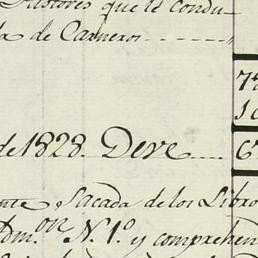 Pastores que le condu-
la de Carneros
de 1828. Deve
ente Sacada de los Libro
Adm.on N. 1.o y comprehen